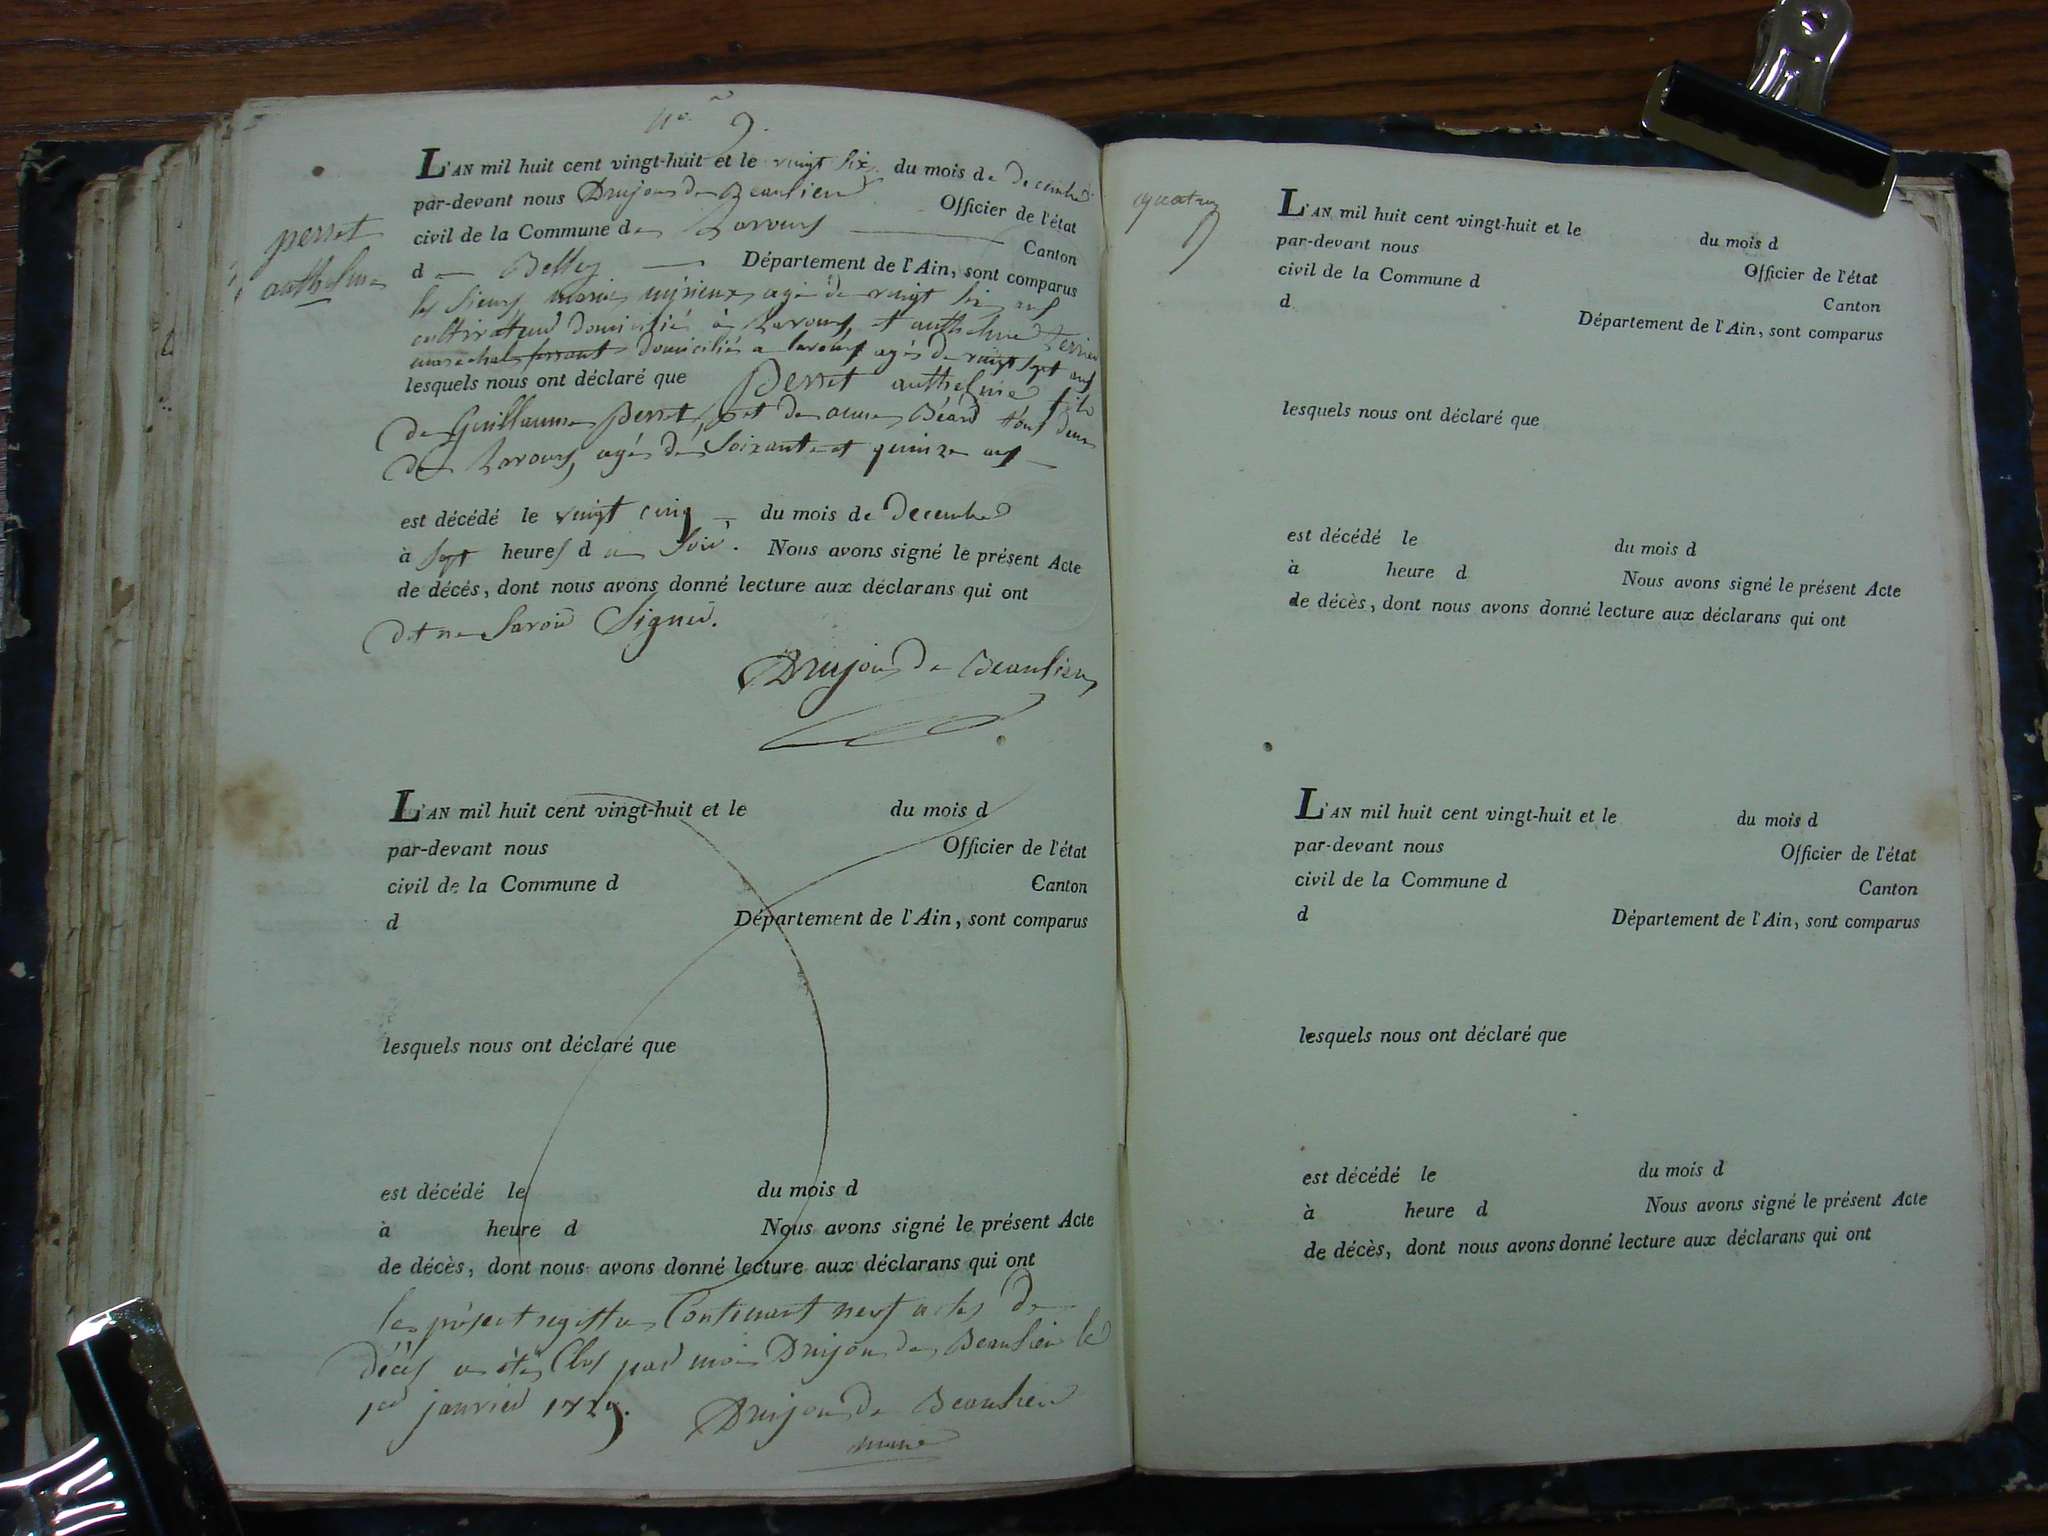 n° 9.
perret
anthelme
L'AN mil huit cent vingt-huit et le vingt six du mois de decembre
par-devant nous Drujon de Beaulieu Officier de l'état
civil de la Commune de Lavours Canton
d Belley Département de l'Ain, sont comparus
les sieurs marie agé de vingt six ans
cultivateur domicilié à Lavours, et anthelme
marechal ferrant domicilié a lavours agés de vingt sept ans
lesquels nous ont déclaré que Perret anthelme fils
de Guillaume Perret, et de Béard tous deux
de Lavours, agé de soixante et quinze ans
est décédé le vingt cinq du mois de decembre
à sept heures d u soir. Nous avons signé le présent Acte
de décès, dont nous avons donné lecture aux déclarans qui ont
dit ne savoir signer.
Drujon de Beaulieu
L'AN mil huit cent vingt-huit et le du mois d
par-devant nous Officier de l'état
civil de la Commune d Canton
d Département de l'Ain, sont comparus
lesquels nous ont déclaré que
est décédé le du mois d
à heure d Nous avons signé le présent Acte
de décès, dont nous avons donné lecture aux déclarans qui ont
le présent registre Contenant neuf actes de
décès a été Clos par moi Drujon de Beaulieu le
1er janvier 1829.
Drujon de Beaulieu
maire
L'AN mil huit cent vingt-huit et le du mois d
par-devant nous Officier de l'état
civil de la Commune d Canton
d Département de l'Ain, sont comparus
lesquels nous ont déclaré que
est décédé le du mois d
à heure d Nous avons signé le présent Acte
de décès, dont nous avons donné lecture aux déclarans qui ont
L'AN mil huit cent vingt-huit et le du mois d
par-devant nous Officier de l'état
civil de la Commune d Canton
d Département de l'Ain, sont comparus
lesquels nous ont déclaré que
est décédé le du mois d
à heure d Nous avons signé le présent Acte
de décès, dont nous avons donné lecture aux déclarans qui ont